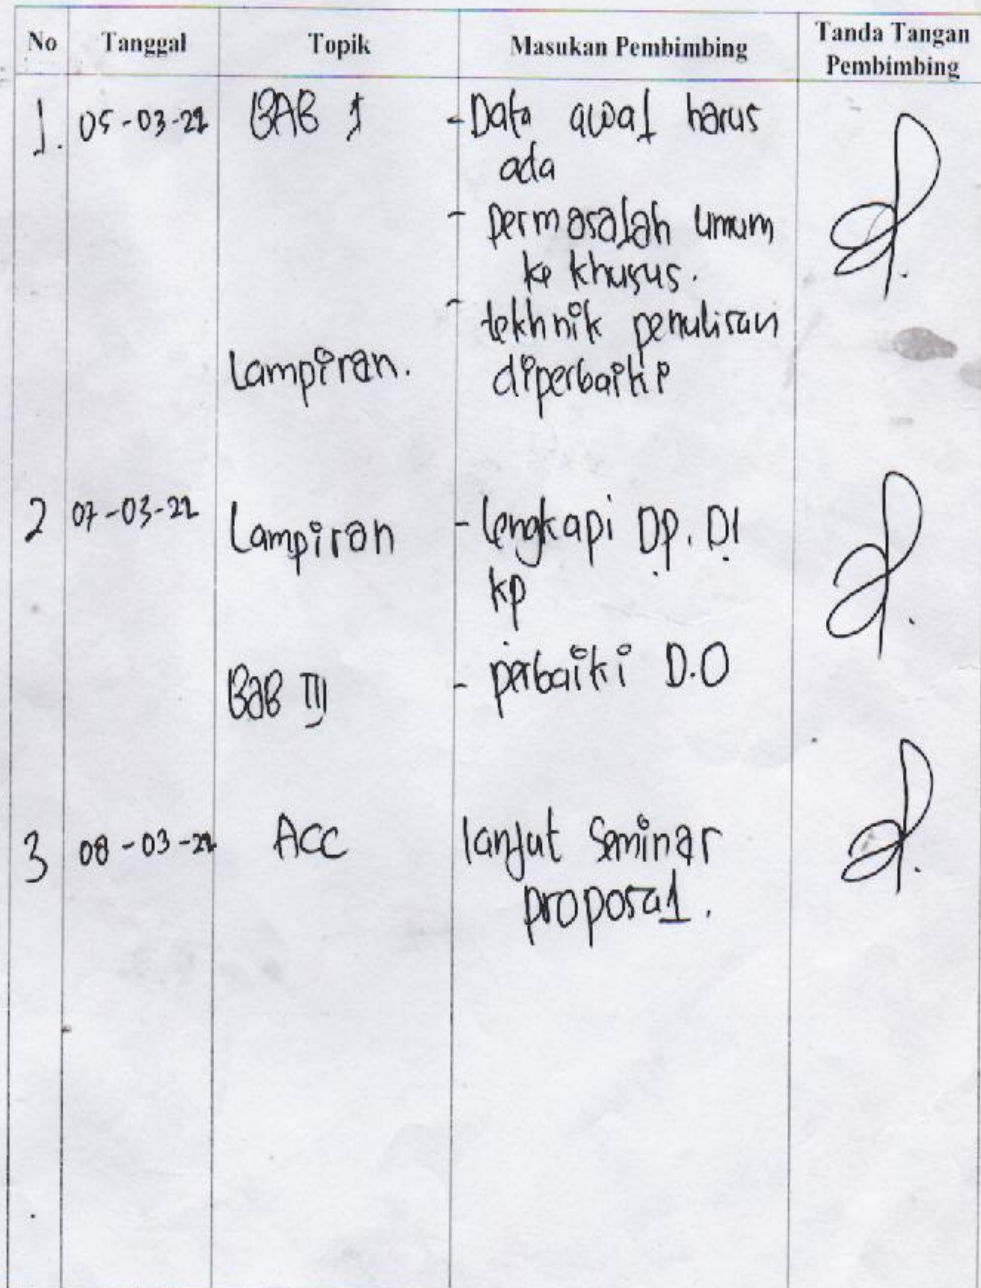 No Tanggal Topik Masukan Pembimbing Tanda Tangan Pembimbing
1. 05-03-22 BAB I - Data awal harus
ada
- permasalah umum
ke khusus.
- tekhnik penulisan
Lampiran. diperbaiki
2 07-03-22 Lampiran - lengkapi DP. DI
kp
BAB III - perbaiki D.O
3 08-03-22 ACC lanjut Seminar
proposal.